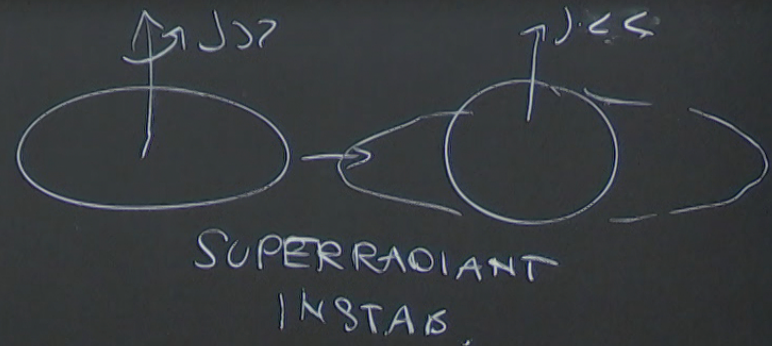 J >>
J <<
SUPERRADIANT
INSTAB.